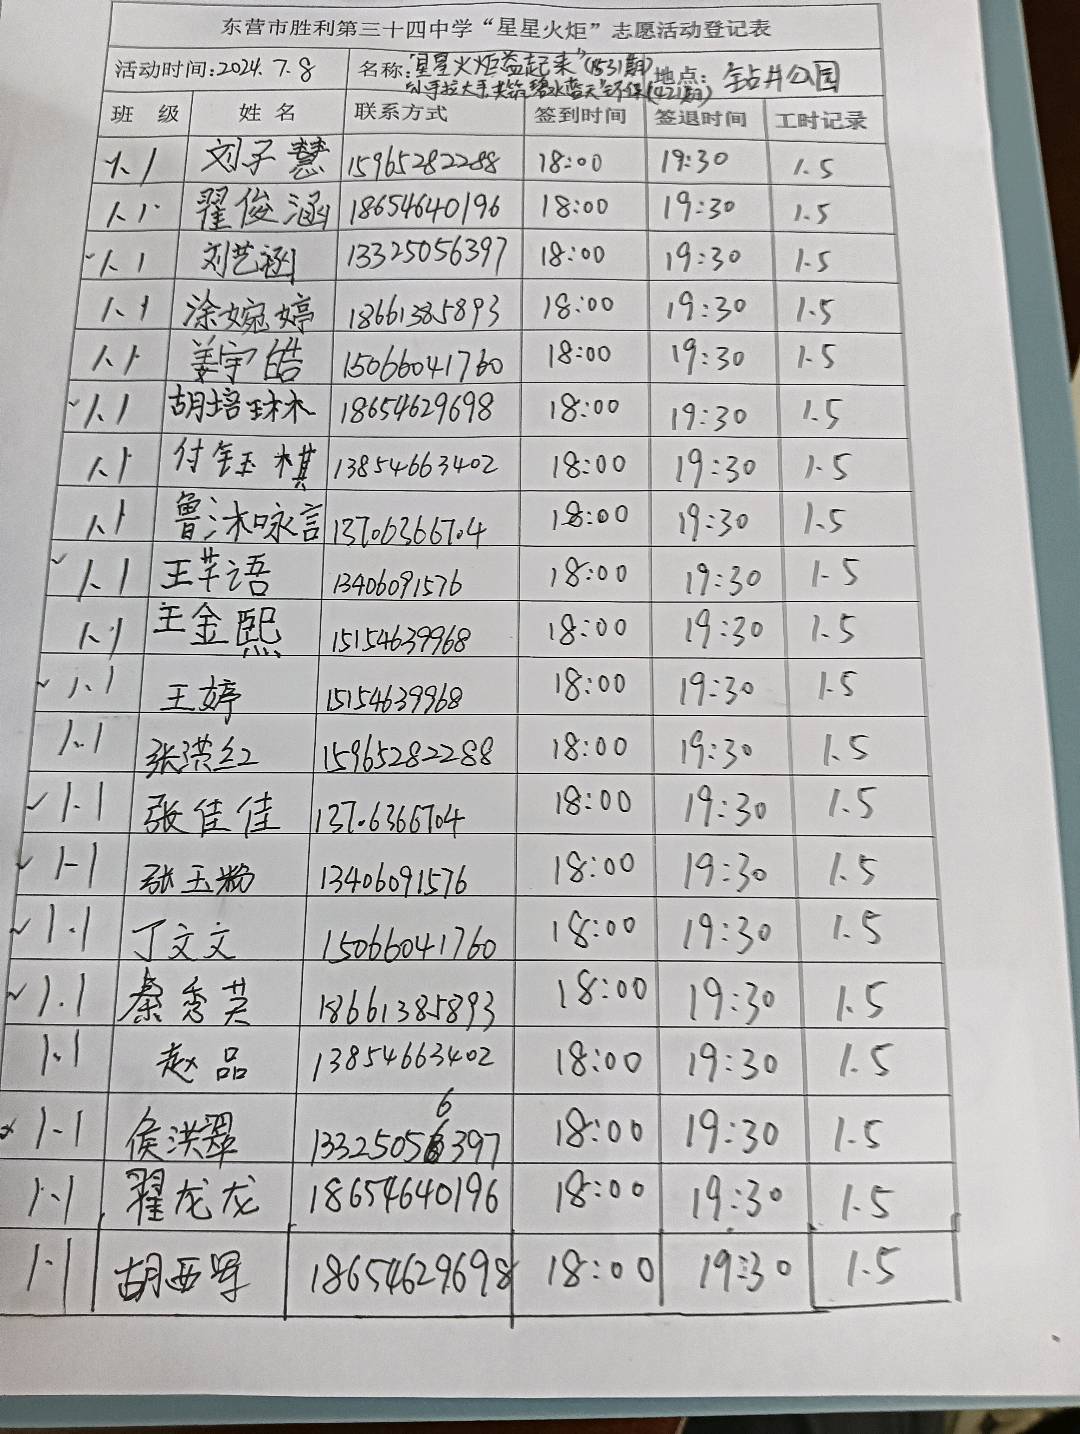 东营市胜利第三十四中学“星星火炬”志愿活动登记表
活动时间:2024.7.8 名称:“星星火炬益起来”(1531期) 地点:钻井公园
小手拉大手,共筑碧水蓝天”环保(421期)
班 级 姓 名 联系方式 签到时间 签退时间 工时记录
1.1 刘子慧 15965282288 18:00 19:30 1.5
1.1 翟俊涵 18654640196 18:00 19:30 1.5
1.1 刘艺涵 13325056397 18:00 19:30 1.5
1.1 涂婉婷 18661385893 18:00 19:30 1.5
1.1 姜宇皓 15066041760 18:00 19:30 1.5
1.1 胡培琳 18654629698 18:00 19:30 1.5
1.1 付钰棋 13854663402 18:00 19:30 1.5
1.1 鲁沐咏言 13706366704 18:00 19:30 1.5
1.1 王芊语 13406091576 18:00 19:30 1.5
1.1 王金熙 15154639968 18:00 19:30 1.5
1.1 王婷 15154639968 18:00 19:30 1.5
1.1 张洪红 15965282288 18:00 19:30 1.5
1.1 张佳佳 13706366704 18:00 19:30 1.5
1-1 张玉粉 13406091576 18:00 19:30 1.5
1.1 丁文文 15066041760 18:00 19:30 1.5
1.1 秦秀英 18661385893 18:00 19:30 1.5
1.1 赵品 13854663402 18:00 19:30 1.5
6
1-1 侯洪翠 13325056397 18:00 19:30 1.5
1-1 翟龙龙 18654640196 18:00 19:30 1.5
1-1 胡西军 18654629698 18:00 19:30 1.5